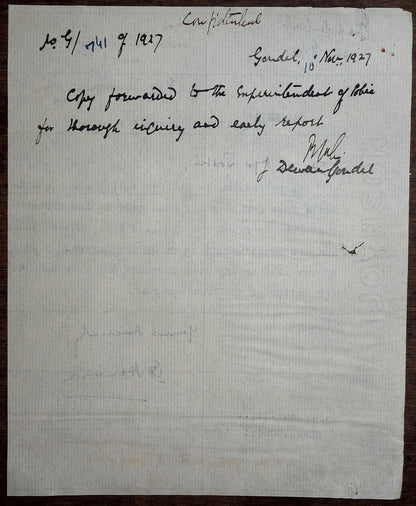 Confidential
No. G/741 of 1927
Gondal, 10 Nov. 1927
Copy forwarded to the Superintendent of Police
for thorough inquiry and early report
Dewan Gondal